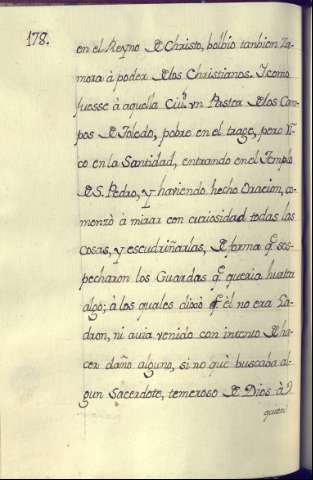 178.
en el Reyno de Christo, bolbio tanbien Za-
mora à poder de los Christianos. I como
fuesse à aquella Ciu.ᵈ vn Pastor de los Can-
pos de Toledo, pobre en el trage, pero Ri-
co en la Santidad, entrando en el Templo
de S. Pedro, y haviendo hecho Oracion, co-
menzò à mirar con curiosidad todas las
cosas, y escudriñarlas, de forma q̃ sos-
pecharon los Guardas q̃ queria hurtar
algo; à los quales dixo q̃ èl no era La-
dron, ni auia venido con intento de ha-
cer daño alguno, si no què buscaba al-
gun Sacerdote, temeroso de Dios à
quien